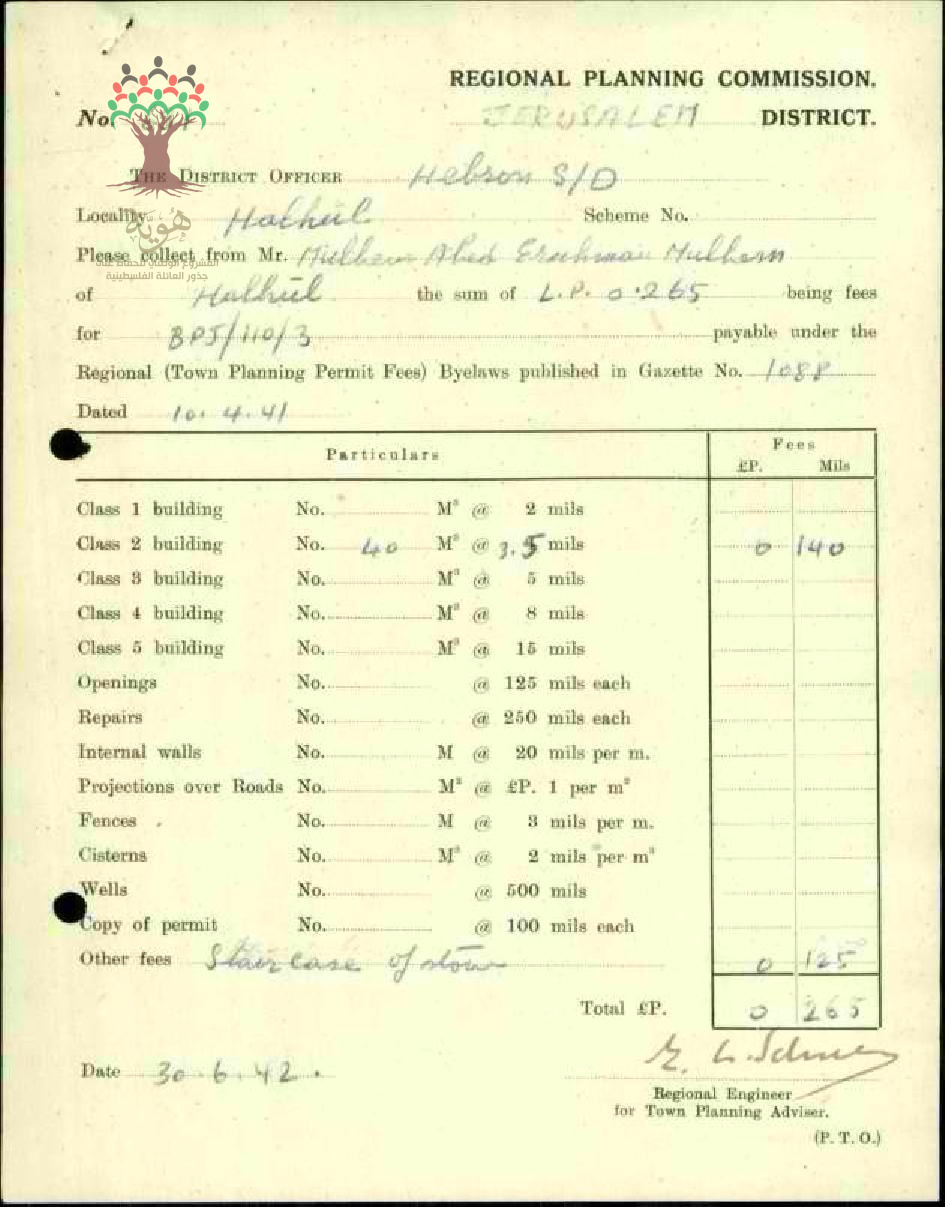 REGIONAL PLANNING COMMISSION.
No. JERUSALEM DISTRICT.
THE DISTRICT OFFICER Hebron S/D
Locality Halhul Scheme No.
هوية
المشروع الوطني للحفاظ على
جذور العائلة الفلسطينية
Please collect from Mr. Mulhem Abed Erahman Mulhem
of Halhūl the sum of L.P. 0.265 being fees
for BPJ/110/3 payable under the
Regional (Town Planning Permit Fees) Byelaws published in Gazette No. 1088
Dated 10. 4. 41
Particulars Fees
£P. Mils
Class 1 building No. M² @ 2 mils
Class 2 building No. 40 M² @ 3.5 mils 0 140
Class 3 building No. M² @ 5 mils
Class 4 building No. M² @ 8 mils
Class 5 building No. M² @ 15 mils
Openings No. @ 125 mils each
Repairs No. @ 250 mils each
Internal walls No. M @ 20 mils per m.
Projections over Roads No. M² @ £P. 1 per m²
Fences No. M @ 3 mils per m.
Cisterns No. M³ @ 2 mils per m³
Wells No. @ 500 mils
Copy of permit No. @ 100 mils each
Other fees Staircase of 0 125
Total £P. 0 265
Date 30.6.42.
Regional Engineer
for Town Planning Adviser.
(P. T. O.)